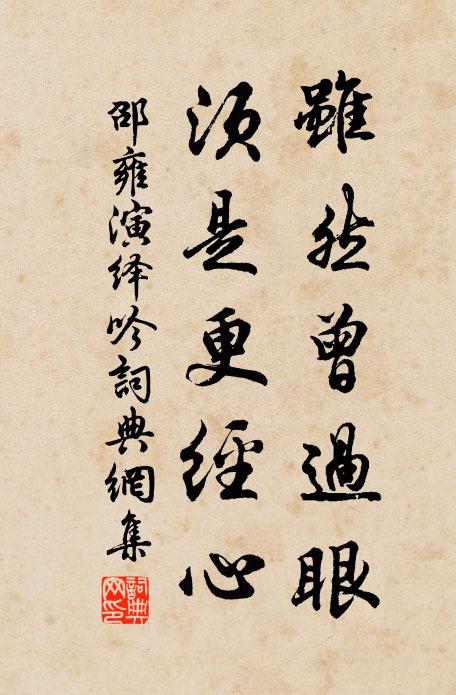 雖然曾過眼
須是更經心
邵雍演绎吟詞典網集